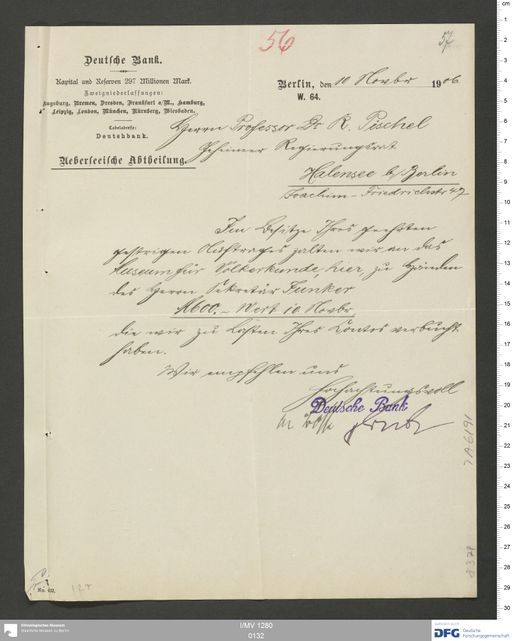 56
57
Deutsche Bank.
Kapital und Reserven 297 Millionen Mark.
Zweigniederlassungen:
Augsburg, Bremen, Dresden, Frankfurt a/M., Hamburg,
Leipzig, London, München, Nürnberg, Wiesbaden.
Cabeladresse:
Deutschbank.
Ueberseeische Abtheilung.
Berlin, den 10 Novbr 1906
W. 64.
Herrn Professor Dr R. Pischel
Geheimer Regierungsrat
Halensee b/Berlin
Joachim-Friedrichstr 47
Im Besitze Ihres geehrten
gestrigen Auftrages zahlten wir an das
Museum für Völkerkunde, hier, zu Händen
des Herrn Sekretär Junker
M600.- Wert 10 Novbr
die wir zu Lasten Ihres Contos verbucht
haben.
Wir empfehlen uns
Hochachtungsvoll
Deutsche Bank
No. 62.
127
I/MV 1280
0132
Ethnologisches Museum
Staatliche Museen zu Berlin
DFG
Deutsche
Forschungsgemeinschaft